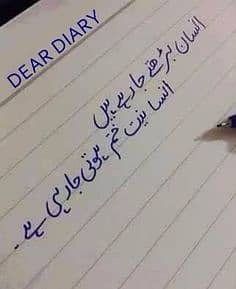 DEAR DIARY
انسان بڑھتے جارہے ہیں
انسانیت ختم ہوتی جارہی ہے۔